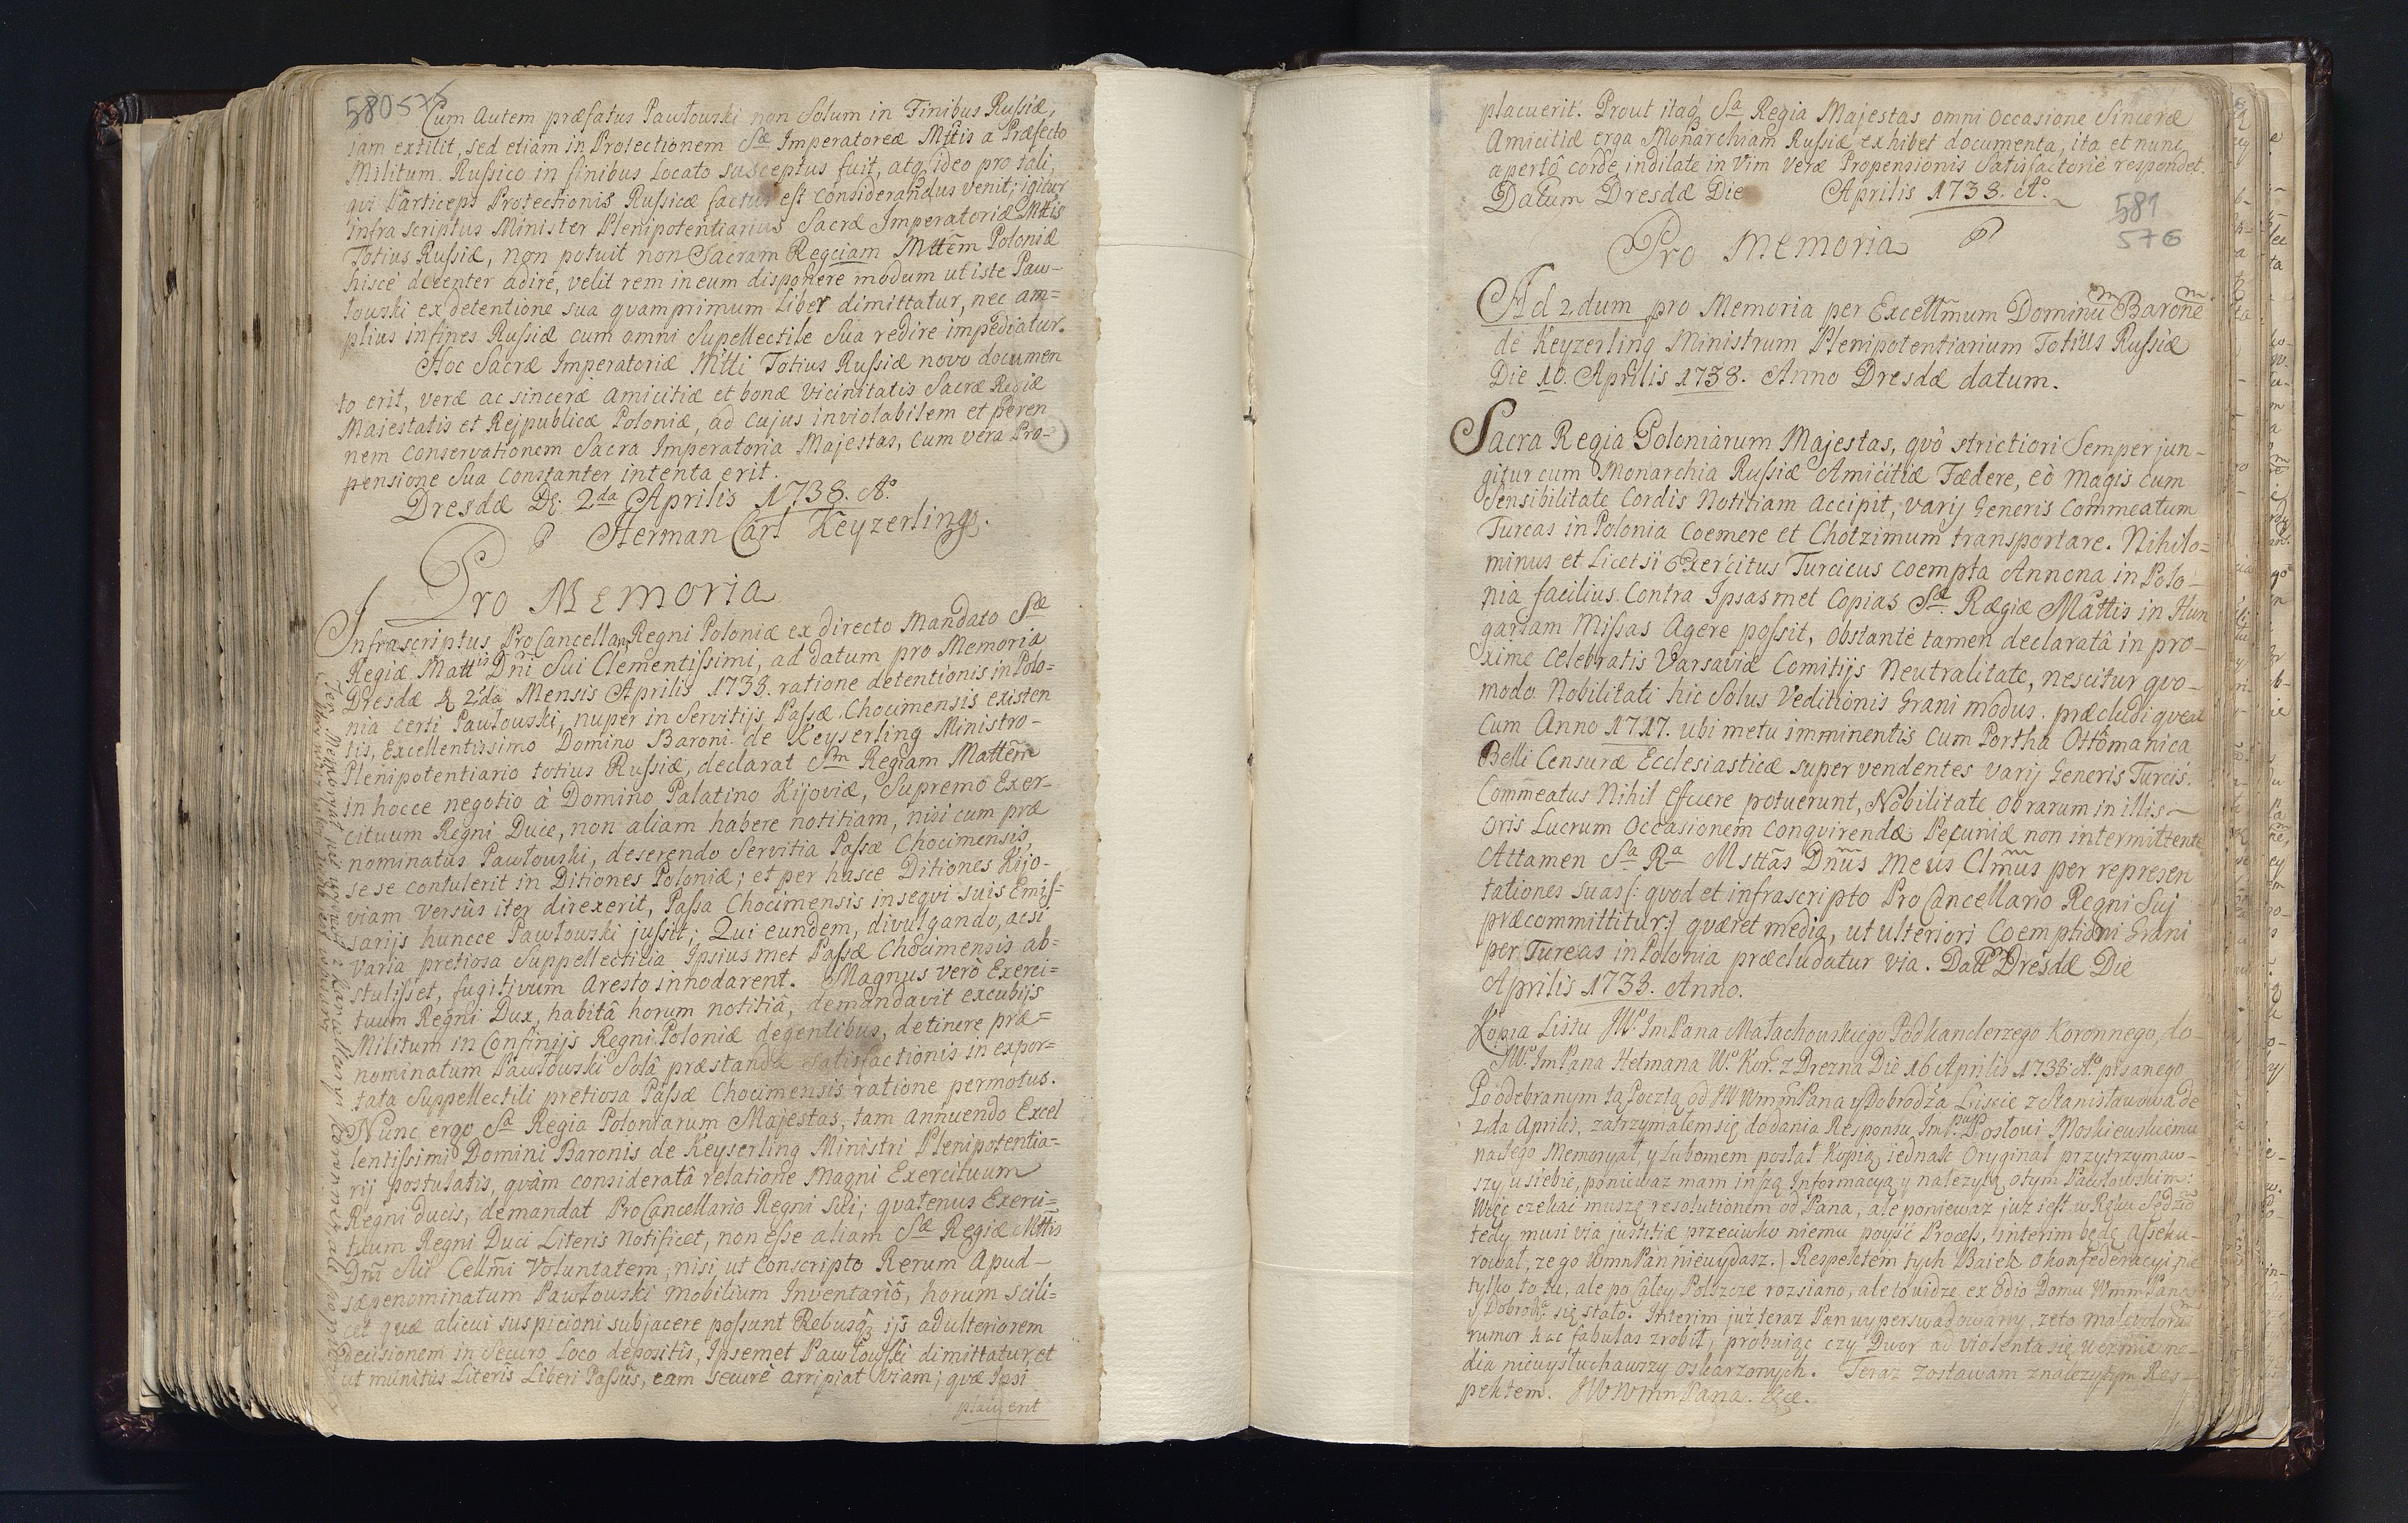 580 575
Cum Autem præfatus Pawłowski non Solum in Finibus Russiæ,
iam extitit, sed etiam in Protectionem Sæ Imperatoreæ Mttis a Præfecto
Militum Russico in finibus Locato susceptus fuit, atq ideo pro tali,
qui Particeps Protectionis Russicæ factus est considerandus venit; igitur
infra scriptus Minister Plenipotentiarius Sacræ Imperatoriæ Mttis
Totius Russiæ, non potuit non Sacram Regciam Mttem Poloniæ
hisce decenter adire, velit rem in eum disponere modum ut iste Paw-
łowski ex detentione sua quamprimum Liber dimittatur, nec am=
plius in fines Russiæ cum omni Supellectile Sua redire impediatur.
Hoc Sacræ Imperatoriæ Mtti Totius Russiæ novo documen
to erit, veræ ac sinceræ amicitiæ et bonæ vicinitatis Sacræ Regiæ
Maiestatis et Rejpublicæ Poloniæ, ad cujus inviolabilem et peren
nem conservationem Sacra Imperatoria Majestas, cum vera Pro-
pensione Sua constanter intenta erit.
Dresdæ D: 2da Aprilis 1738. Ao
Herman Carl Keyzerling.
Pro Memoria
Infrascriptus ProCancellarius Regni Poloniæ ex directo Mandato Sæ
Regiæ Mattis Dni Sui Clementissimi, ad datum pro Memoria
Dresdæ 2da Mensis Aprilis 1738. ratione detentionis in Polo=
nia certi Pawłowski, nuper in Servitijs Passæ Chocimensis existen
tis, Excellentissimo Domino Baroni de Keyserling Ministro-
Plenipotentiario totius Russiæ, declarat Sm Regiam Mattem
in hocce negotio à Domino Palatino Kijoviæ, Supremo Exer-
cituum Regni Duce, non aliam habere notitiam, nisi cum præ
nominatus Pawłowski, deserendo Servitia Passæ Chocimensis,
sese contulerit in Ditiones Poloniæ; et per hasce Ditiones Kijo-
viam versus iter direxerit, Passa Chocimensis insequi suis Emis=
sarijs huncce Pawłowski jussit; Qui eundem, divulgando, acsi
varia pretiosa Suppellecticia Ipsiusmet Passæ Chocimensis ab-
stulisset, fugitivum aresto innodarent. Magnus verò Exerci=
tuum Regni Dux, habitâ horum notitiâ, demandavit excubijs
Militum in Confinijs Regni Poloniæ degentibus, detinere præ=
nominatum Pawłowski Solâ præstandæ satisfactionis in expor=
tata Suppellectili pretiosa Passæ Chocimensis ratione permotus.
Nunc ergo Sa Regia Poloniarum Majestas, tam annuendo Excel
lentissimi Domini Baronis de Keyserling Ministri Plenipotentia=
rij postulatis, quàm consideratâ relatione Magni Exercituum
Regni ducis, demandat ProCancellario Regni Sui; quatenus Exerci=
tuum Regni Duci Literis notificet, non esse aliam Sæ Regiæ Mttis
Dni Sui Cellmi Voluntatem, nisi ut conscripto Rerum Apud-
sæpenominatum Pawłowski mobilium Inventariô, horum scili=
cet quæ alicui suspicioni subjacere possunt Rebusq ijs ad ulteriorem
decisionem in Securo Loco depositis, Ipsemet Pawłowski dimittatur, et
ut munitus Literis Liberi Passûs, eam securè arripiat viam; quæ Ipsi
placuerit
placuerit. Prout itaq Sa Regia Majestas omni occasione Sinceræ
Amicitiæ erga Monarchiam Russiæ exhibet documenta, ita et nunc
apertô corde indilate in vim veræ Propensionis Satisfactoriè respondet.
Datum Dresdæ Die Aprilis 1738. Ao
581
576
Pro Memoria
Ad 2dum pro Memoria per Excellmum Dominum Baronem
de Keyzerling Ministrum Plenipotentiarium Totius Russiæ
Die 10. Aprilis 1738. Anno Dresdæ datum.
Sacra Regia Poloniarum Majestas, quô strictiori Semper jun-
gitur cum Monarchia Russiæ Amicitiæ Fædere, eò magis cum
Sensibilitate Cordis Notitiam accipit, varij Generis Commeatum
Turcas in Polonia coemere et Chotzimum transportare. Nihilo=
minus et Licet si Exercitus Turcicus coempta Annona in Polo-
nia facilius contra Ipsasmet Copias Sæ Regiæ Mattis in Hun
gariam Missas Agere possit, obstante tamen declaratâ in pro-
xime Celebratis Varsaviæ Comitijs Neutralitate, nescitur quo-
modo Nobilitati hic Solus Veditionis Grani modus præcludi queat
cum Anno 1717. ubi metu imminentis cum Portha Ottomanica
Belli Censuræ Ecclesiasticæ super vendentes varij Generis Turcis
Commeatus Nihil efficere potuerunt, Nobilitate ob rarum in illis
oris Lucrum Occasionem conquirendæ Pecuniæ non intermittente
Attamen Sa Ra Msttas Dnus Meus Clmus per represen
tationes suas /: quod et infrascripto ProCancellario Regni Suj
præcommittitur:/ quæret media, ut ulteriori Coemptioni Grani
per Turcas in Polonia præcludatur via. Datt Dresdæ Die
Aprilis 1738. Anno.
Kopia Listu JWo ImPana Małachowskiego Podkanclerzego Koronnego, do
JWo ImPana Hetmana Wo Kor. z Drezna Die 16 Aprilis 1738. Ao pisanego
Po odebranym tą Pocztą od JWWmPana y Dobrodza Liscie z Stanisławowa de
2da Aprilis, zatrzymałem się do dania Responsu ImPanu Posłowi Moskiewskiemu
na iego Memoryał, y Lubomem posłał Kopią iednak Oryginał przytrzymaw-
szy u siebie, poniewaz mam inszą Informacyą y nalezytą o tym Pawłowskim:
Więc czekać muszę resolutionem od Pana, ale poniewaz juz iest w Ręku Sędzio
tedy musi via justitiæ przeciwko niemu poyść Process, interim będę asseku-
rował, ze go WmnPan niewydasz.) Respektem tych Baiek o konfederacyi nie
tylko to tu, ale po całey Polszcze rozsiano, ale to widzę ex Odio Domu WmmPana
y Dobrodza się stało. Interim juz teraz Pan wyperswadowany, ze to malevolorum
rumor hac fabulas zrobił, probuiąc czy Dwor ad violenta się wezmie
dia niewysłuchawszy oskarzonych. Teraz zostawam z nalezytym Res-
pektem. JWWmnPana. &c.